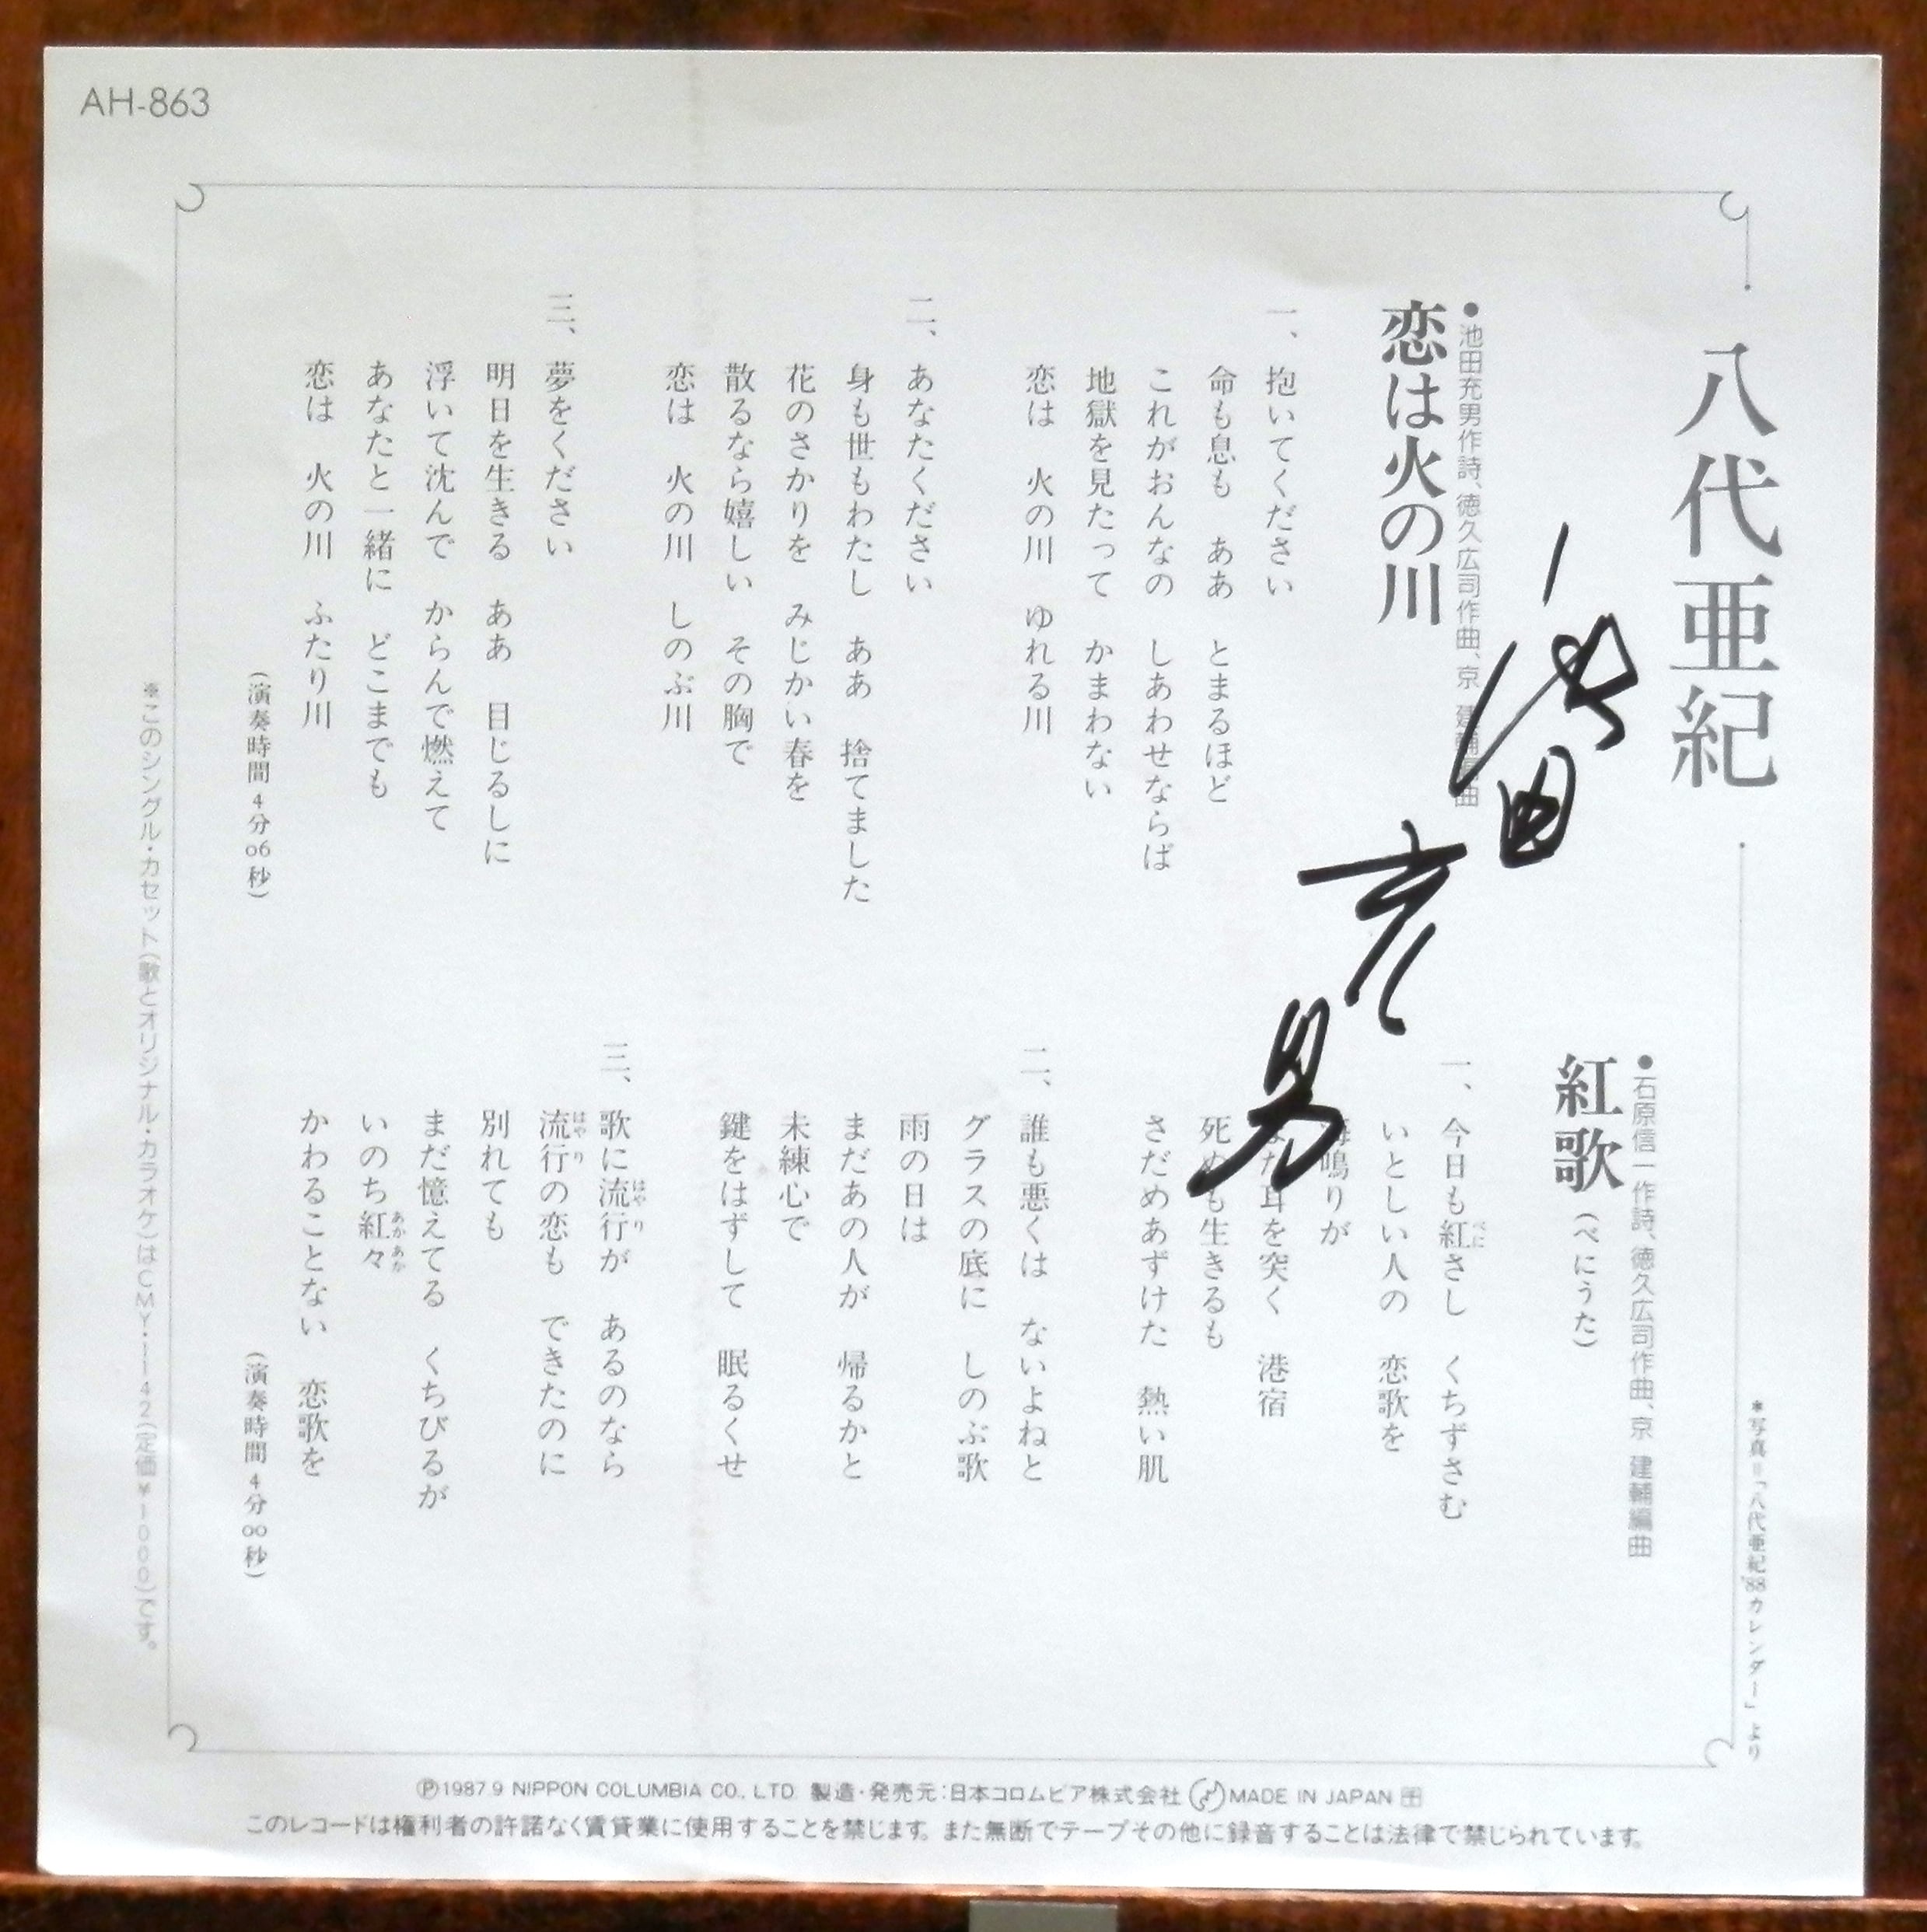 AH-863
八代亜紀
＊写真=「八代亜紀'88カレンダー」より
●池田充男作詩、徳久広司作曲、京 建輔編曲
恋は火の川
一、抱いてください
命も息も ああ とまるほど
これがおんなの しあわせならば
地獄を見たって かまわない
恋は 火の川 ゆれる川
二、あなたください
身も世もわたし ああ 捨てました
花のさかりを みじかい春を
散るなら嬉しい その胸で
恋は 火の川 しのぶ川
三、夢をください
明日を生きる ああ 目じるしに
浮いて沈んで からんで燃えて
あなたと一緒に どこまでも
恋は 火の川 ふたり川
(演奏時間4分06秒)
●石原信一作詩、徳久広司作曲、京 建輔編曲
紅歌(べにうた)
一、今日も紅さし くちずさむ
べに
いとしい人の 恋歌を
海鳴りが
また耳を突く 港宿
死ぬも生きるも
さだめあずけた 熱い肌
二、誰も悪くは ないよねと
グラスの底に しのぶ歌
雨の日は
まだあの人が 帰るかと
未練心で
鍵をはずして 眠るくせ
三、歌に流行が あるのなら
はやり
流行の恋も できたのに
はやり
別れても
まだ憶えてる くちびるが
いのち紅々
あかあか
かわることない 恋歌を
(演奏時間4分00秒)
※このシングル・カセット(歌とオリジナル・カラオケ)はCMY・1142(定価¥1000)です。
池田充男
Ⓟ1987.9 NIPPON COLUMBIA CO., LTD. 製造・発売元:日本コロムビア株式会社 MADE IN JAPAN
このレコードは権利者の許諾なく賃貸業に使用することを禁じます。また無断でテープその他に録音することは法律で禁じられています。